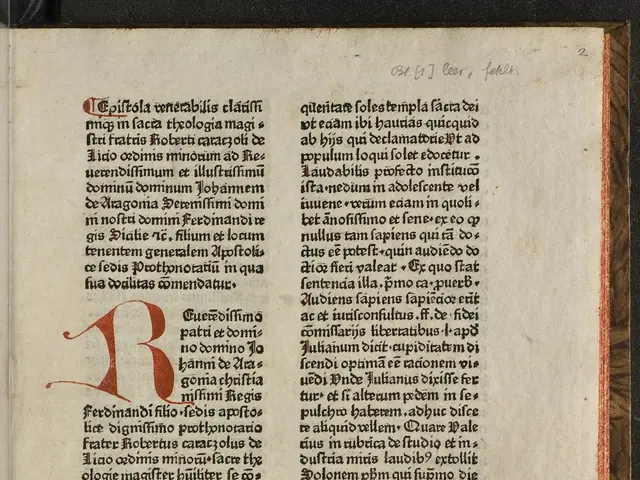 2
Bl. [1] leer, fehlt
Epistola venerabilis clarissi
miqꝫ in sacra theologia magi⸗
stri fratris Roberti caraczoli de
Licio ordinis minorum ad Re⸗
uerendissimum et illustrissimū
dominū dominum Johannem
de Aragonia Serenissimi domi
ni nostri domini Ferdinandi re
gis Sicilie ⁊c̄. filium et locum
tenentem generalem Apostoli⸗
ce sedis Prothonotariū in qua
sua docilitas cōmendatur·
REuerēdissimo
patri et domi⸗
no domino Jo
hanni de Ara⸗
gonia christia
nissimi Regis
Ferdinandi filio·sedis aposto⸗
lice dignissimo prothonotario
frater Robertus caraczolus de
Licio ordinis minorū·sacre the
ologie magister hūiliter se cō⸗
quentare soles templa sacra dei
vt eciam ibi haurias quicquid
ab hijs qui declamatorie Ut ad
populum loqui solet edocetur.
Laudabilis profecto institucō
ista·nedum in adolescente vel
iuuene·verum eciam in quoli⸗
bet ānosissimo et sene·ex eo qꝫ
nullus tam sapiens qui tā do⸗
ctus eē potest·quin audiēdo do
ctior fieri valeat·Ex quo stat
sentencia illa. p̄mo ca.ꝓuerb̄.
Audiens sapiens sapiēcior erit
ac et iurisconsultus.ff.de fidei
cōmissarijs libertatibus.l.apd̄
Julianum dicit·cupiditatem di
scendi optimam eē racionem vi⸗
uēdi Unde Julianus dixisse fer
tur·et si alterum pedem in se⸗
pulchro haberem.adhuc disce
re aliquid vellem·Quare Vale
rius in rubrica de studio et in⸗
dustria miris laudibꝫ extollit
Solonem ph̄m qui supmo die